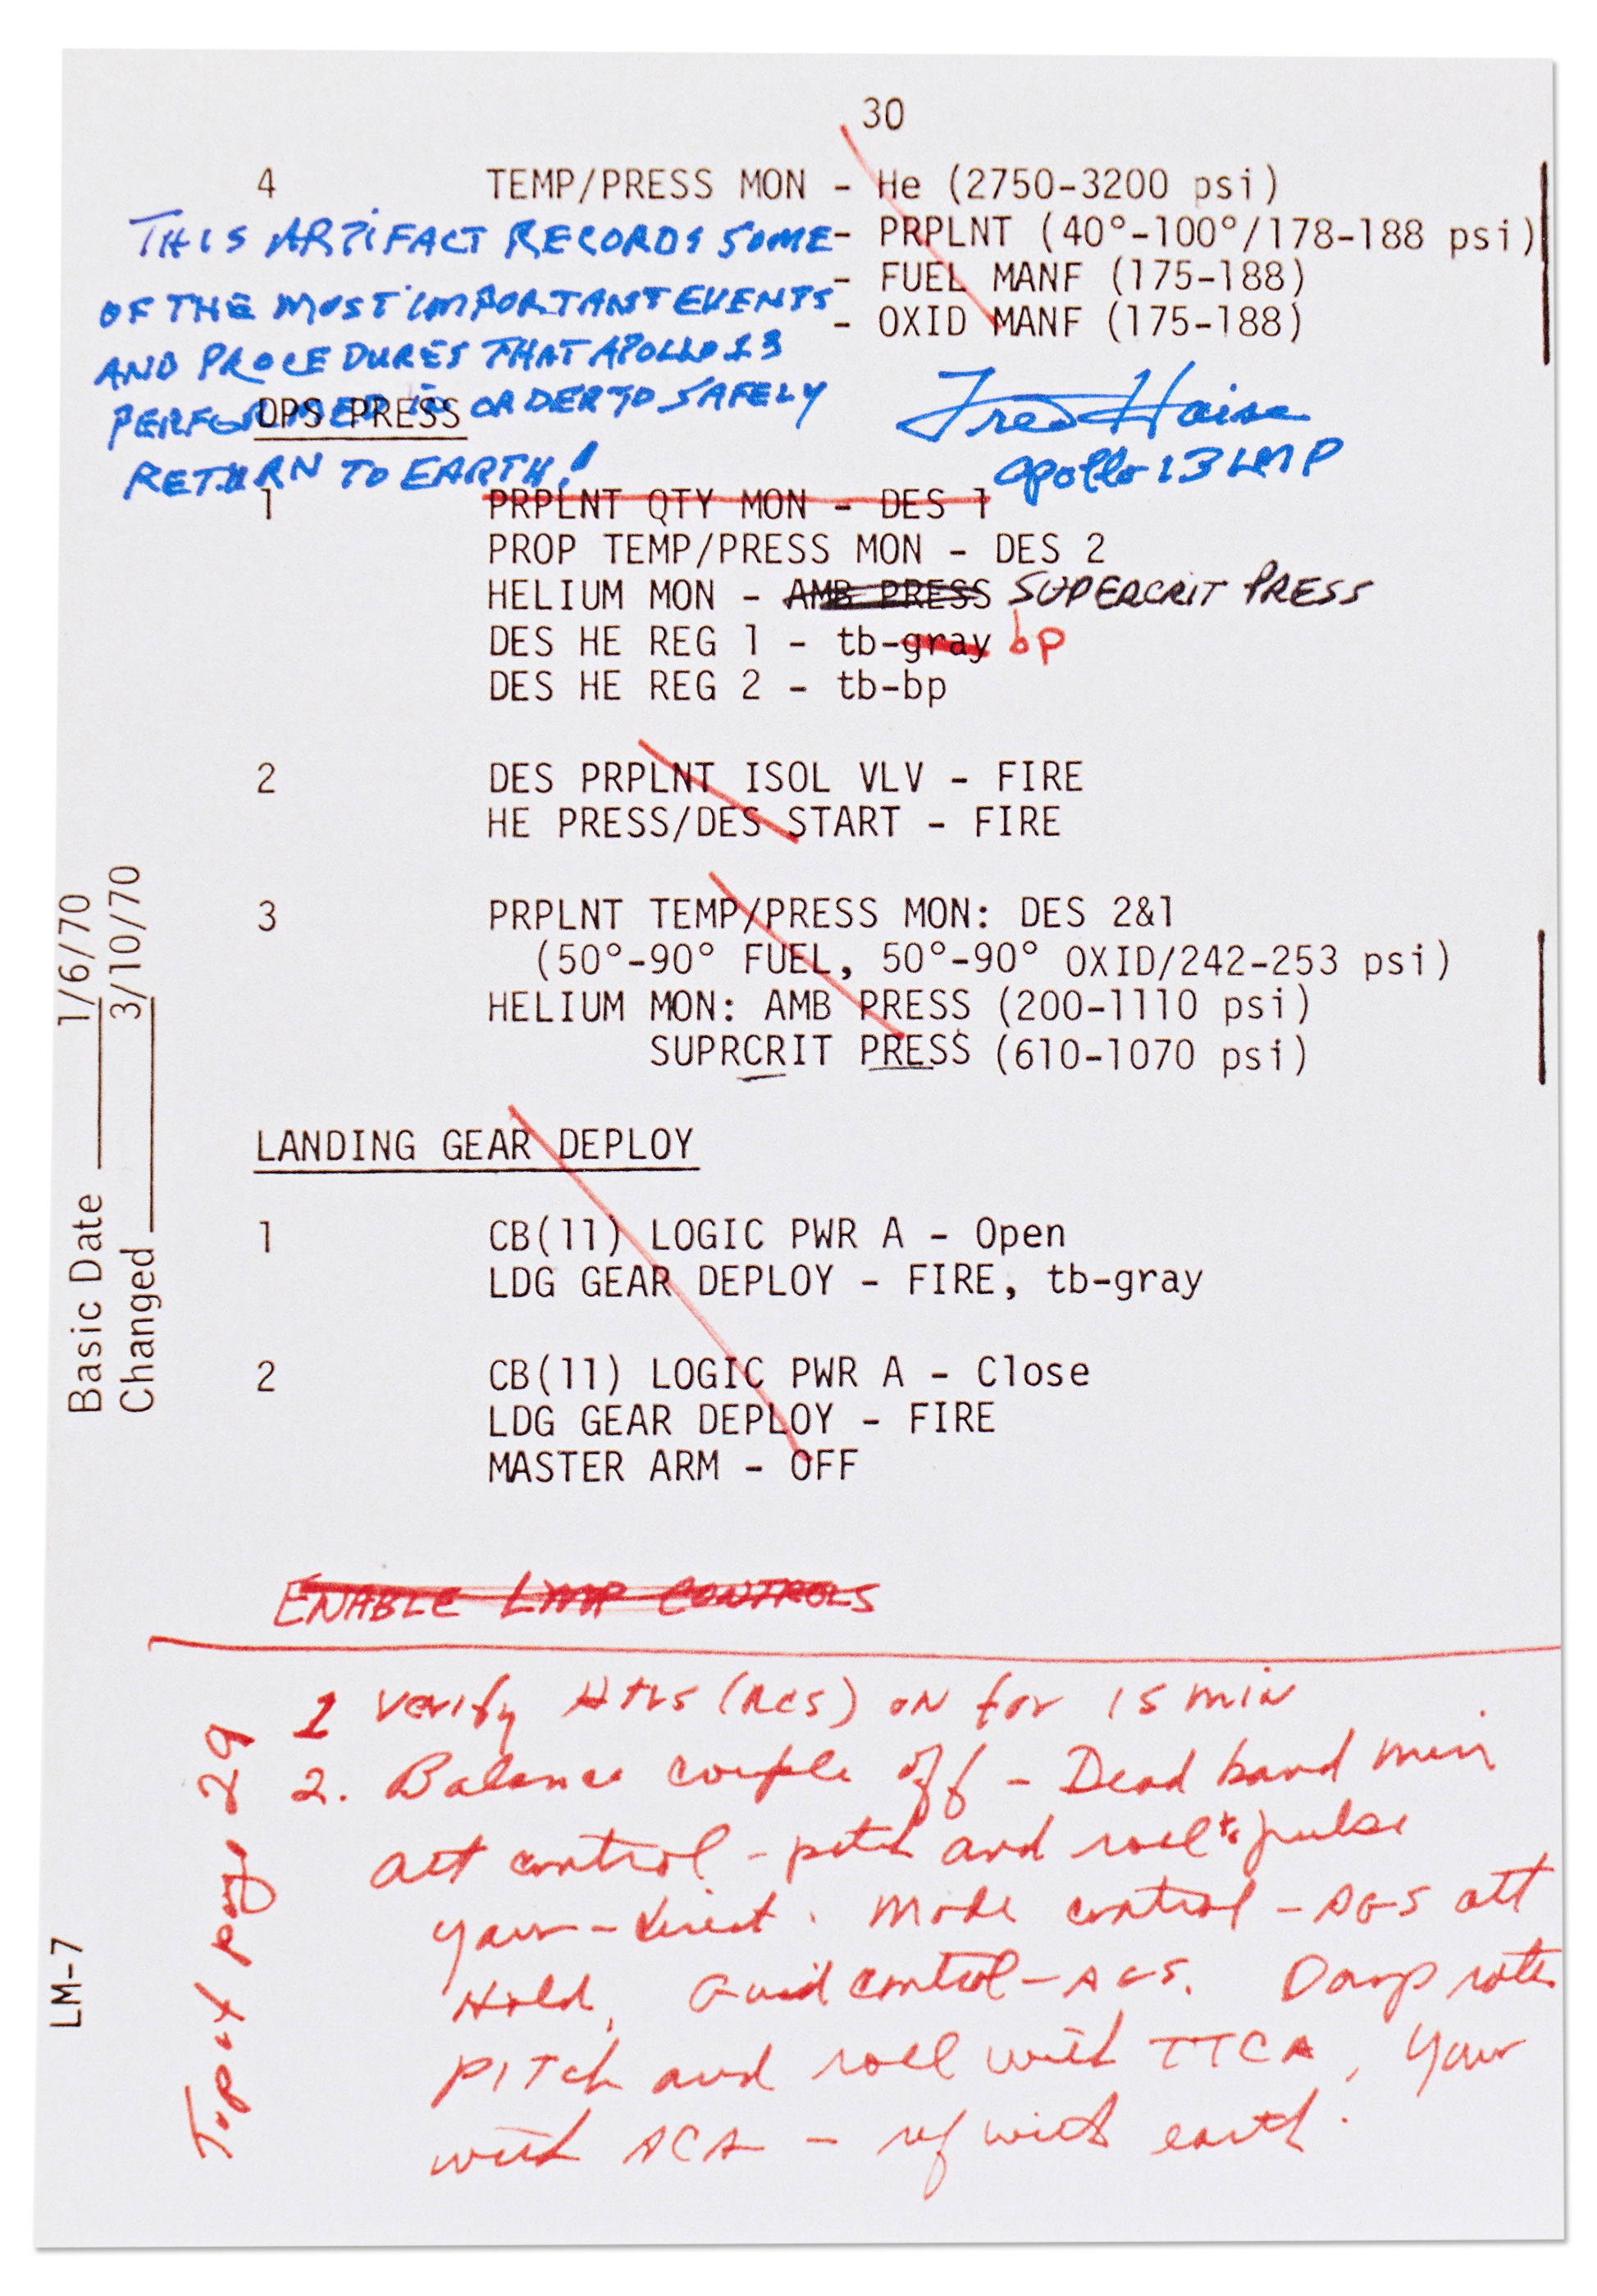 30
4 TEMP/PRESS MON - He (2750-3200 psi)
- PRPLNT (40°-100°/178-188 psi)
- FUEL MANF (175-188)
- OXID MANF (175-188)
THIS ARTIFACT RECORDS SOME
OF THE MOST IMPORTANT EVENTS
AND PROCEDURES THAT APOLLO 13
PERFORMED IN ORDER TO SAFELY
RETURN TO EARTH!
Fred Haise
Apollo 13 LMP
DPS PRESS
1 PRPLNT QTY MON - DES 1
PROP TEMP/PRESS MON - DES 2
HELIUM MON - AMB PRESS SUPERCRIT PRESS
DES HE REG 1 - tb-gray bp
DES HE REG 2 - tb-bp
2 DES PRPLNT ISOL VLV - FIRE
HE PRESS/DES START - FIRE
3 PRPLNT TEMP/PRESS MON: DES 2&1
(50°-90° FUEL, 50°-90° OXID/242-253 psi)
HELIUM MON: AMB PRESS (200-1110 psi)
SUPRCRIT PRESS (610-1070 psi)
LANDING GEAR DEPLOY
1 CB(11) LOGIC PWR A - Open
LDG GEAR DEPLOY - FIRE, tb-gray
2 CB(11) LOGIC PWR A - Close
LDG GEAR DEPLOY - FIRE
MASTER ARM - OFF
ENABLE LMP CONTROLS
1 Verify HTRS (RCS) ON for 15 min
2. Balance couple off - Dead band min
att control - pitch and roll to pulse
yaw - direct. Mode control - AGS att
Hold, Guid control - AGS. Damp rates
PITCH and roll with TTCA, Yaw
with ACA - ref with earth.
Top of page 29
Basic Date 1/6/70
Changed 3/10/70
LM-7